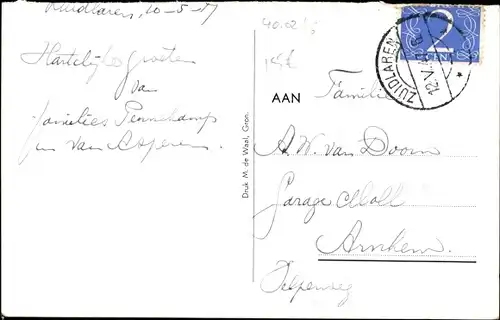 Zuidlaren, 10-5-51
Hartelijke groeten
van
families Pennekamp
en van Asperen.
Druk M. de Waal, Gron.
AAN
Familie
A.W. van Doorn
Garage Moll
Arnhem.
ZUIDLAREN
12.V.
2
CENT